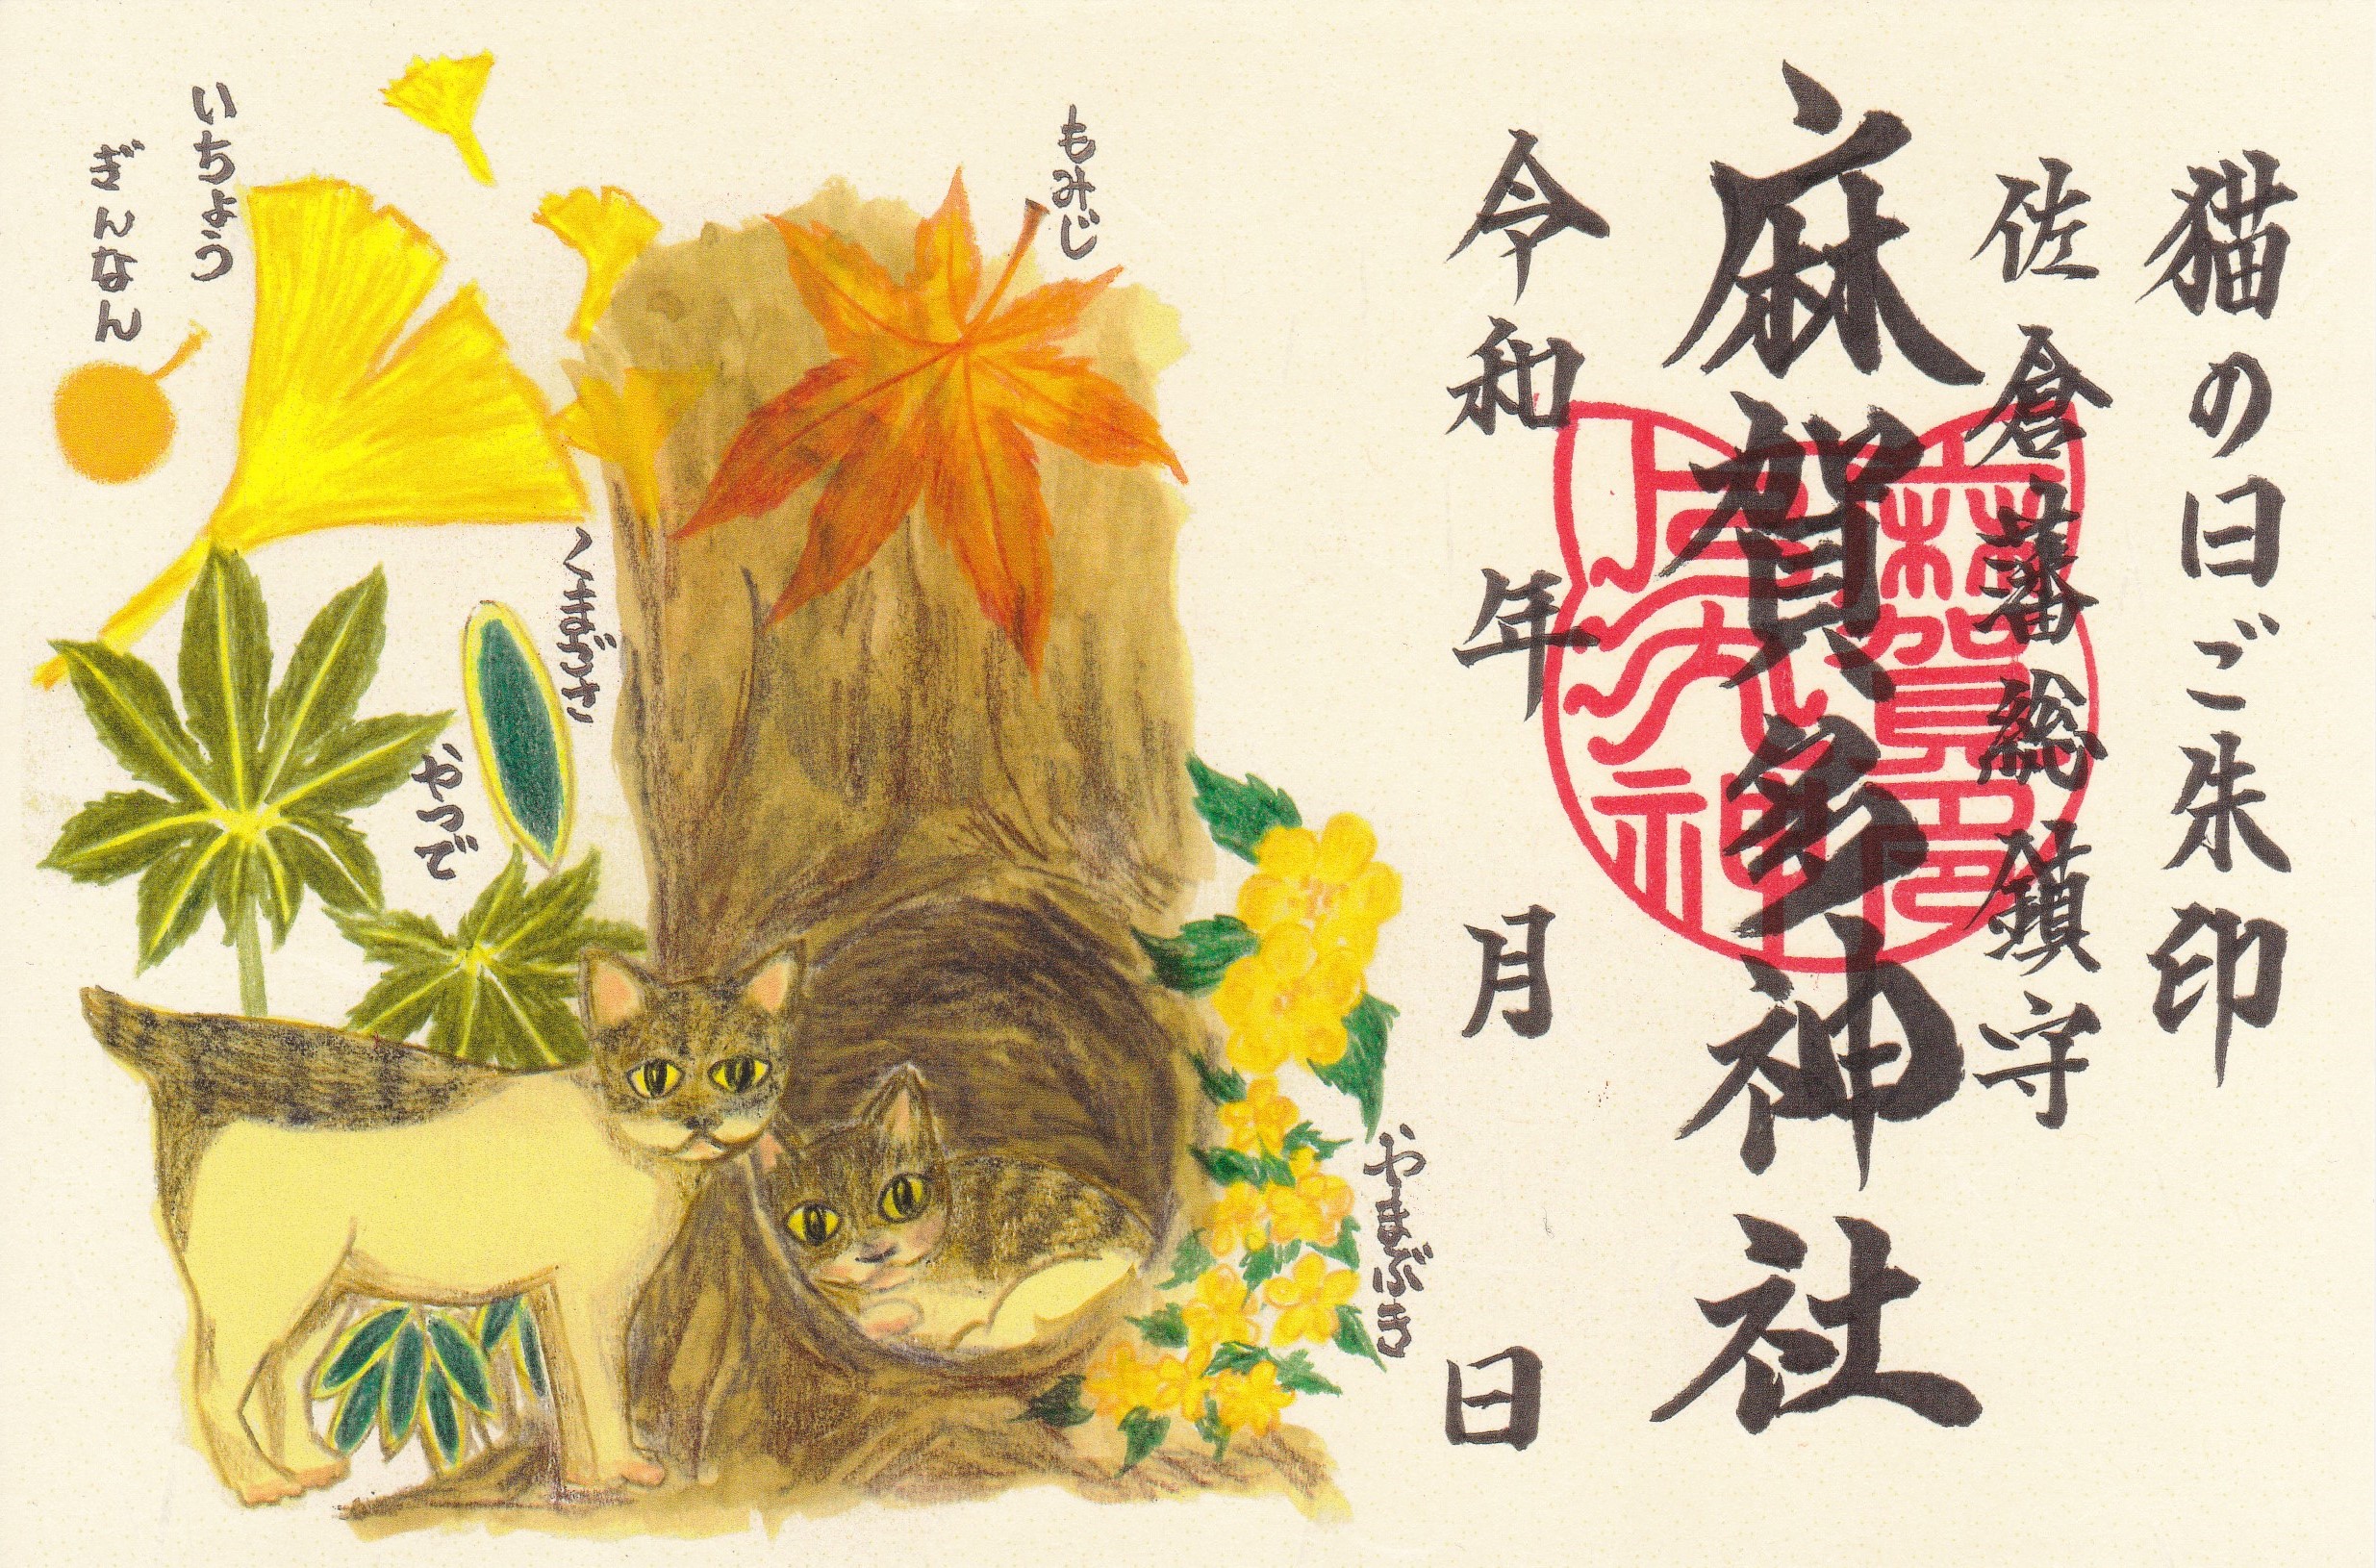 猫の日ご朱印
佐倉藩総鎮守
麻賀多神社
令和 年 月 日
もみじ
いちょう
ぎんなん
くまざさ
やつで
やまぶき